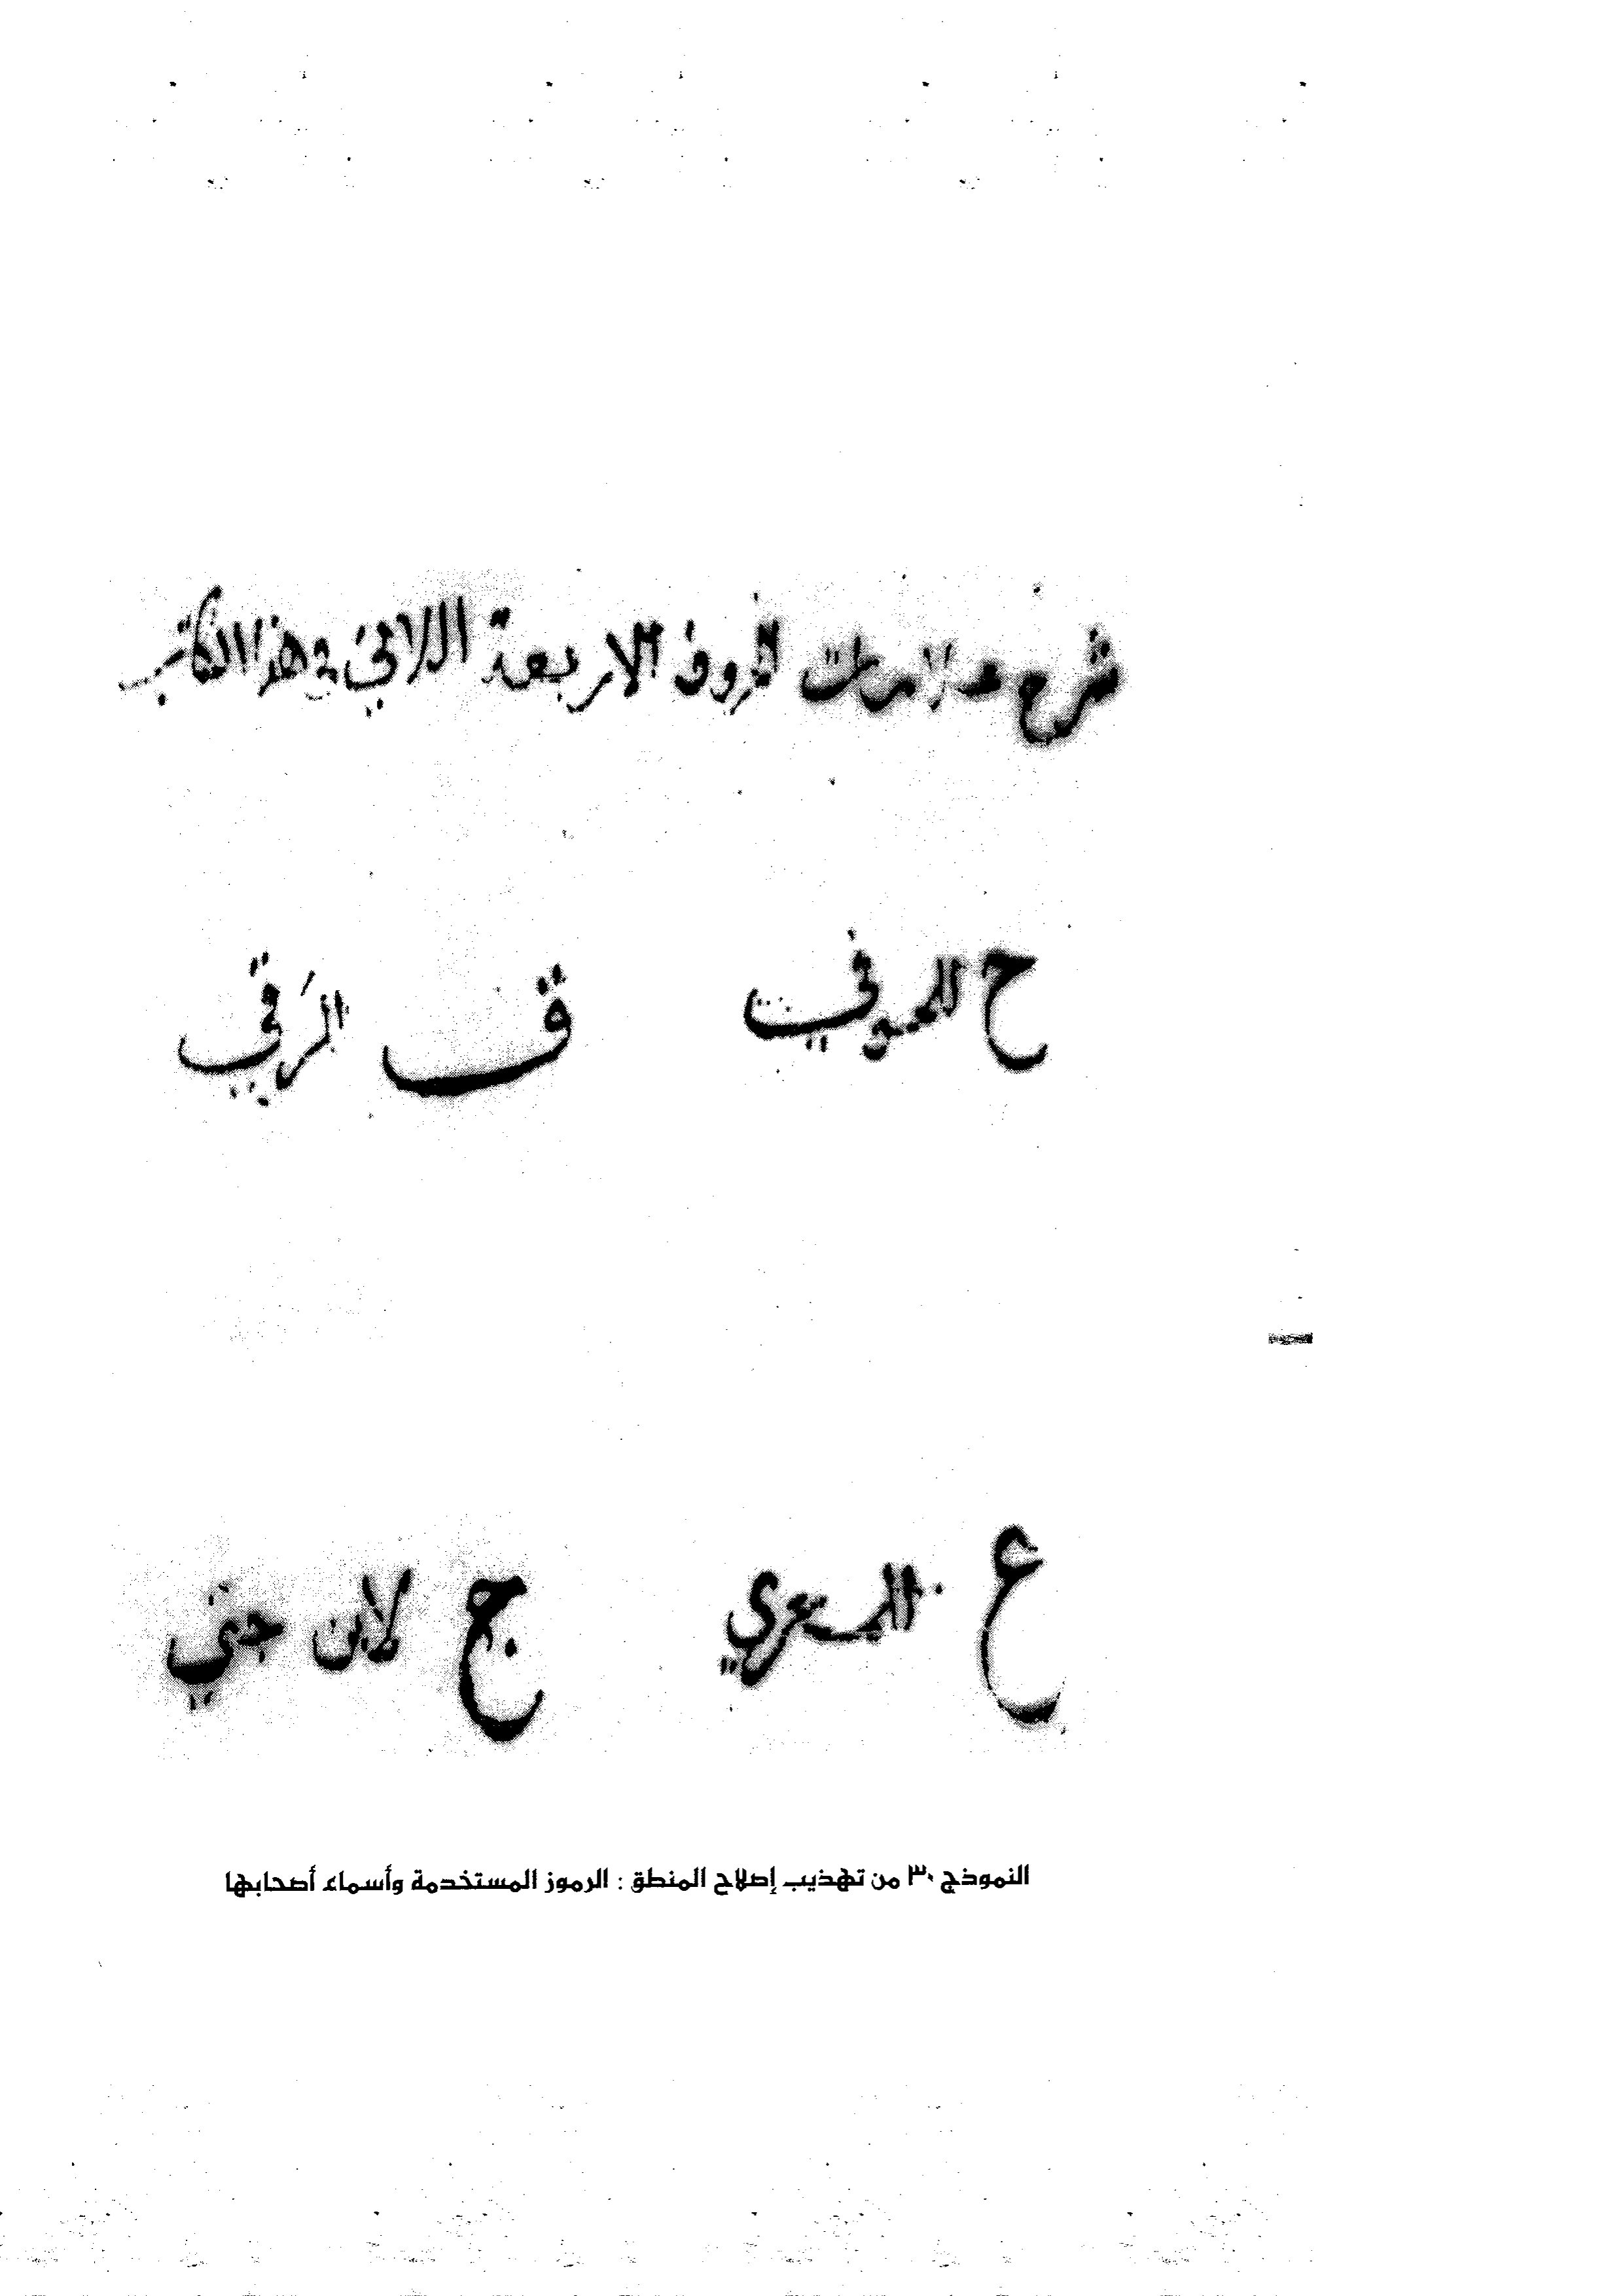 شرح علامات الحروف الاربعة اللاتي في هذا الكتاب
ح للحوفي ق الرقي
ع للمعري ج لابن جني
النموذج ٣٠ من تهذيب إصلاح المنطق : الرموز المستخدمة وأسماء أصحابها